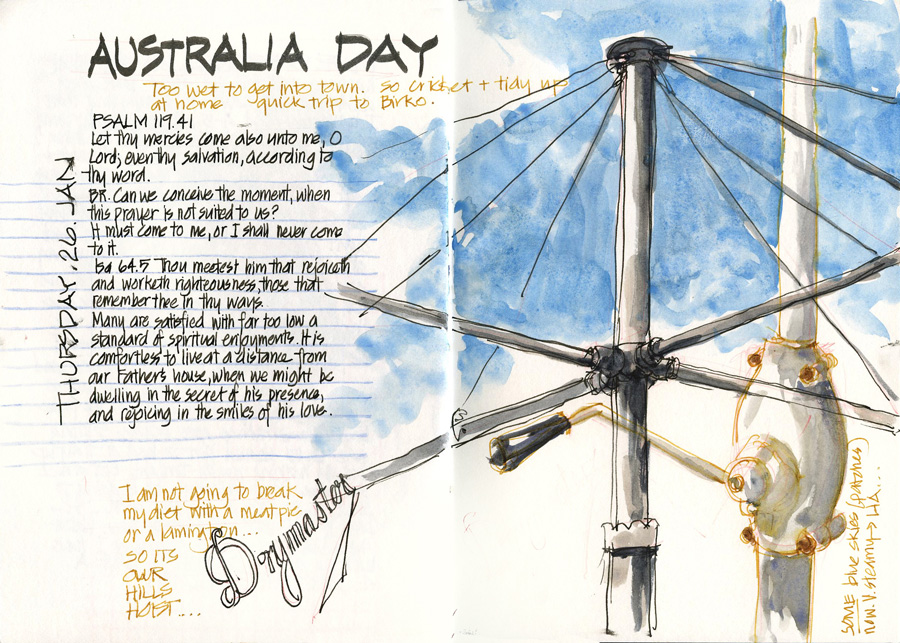 AUSTRALIA DAY
Too wet to get into town. So cricket + tidy ups
at home quick trip to Birko.
PSALM 119.41
Let thy mercies come also unto me, O
Lord; even thy salvation, according to
thy word.
BR. Can we conceive the moment, when
this prayer is not suited to us?
It must come to me, or I shall never come
to it.
Isa 64.5 Thou meetest him that rejoiceth
and worketh righteousness, those that
remember thee in thy ways.
Many are satisfied with far too low a
standard of spiritual enjoyments. It is
comfortless to live at a distance from
our Father's house, when we might be
dwelling in the secret of his presence,
and rejoicing in the smiles of his love.
THURSDAY. 26. JAN
I am not going to break
my diet with a meat pie
or a lamington...
SO ITS
OUR
HILLS
HOIST....
Drymaster
SOME blue skies (patches)
now. V. steamy → HA...